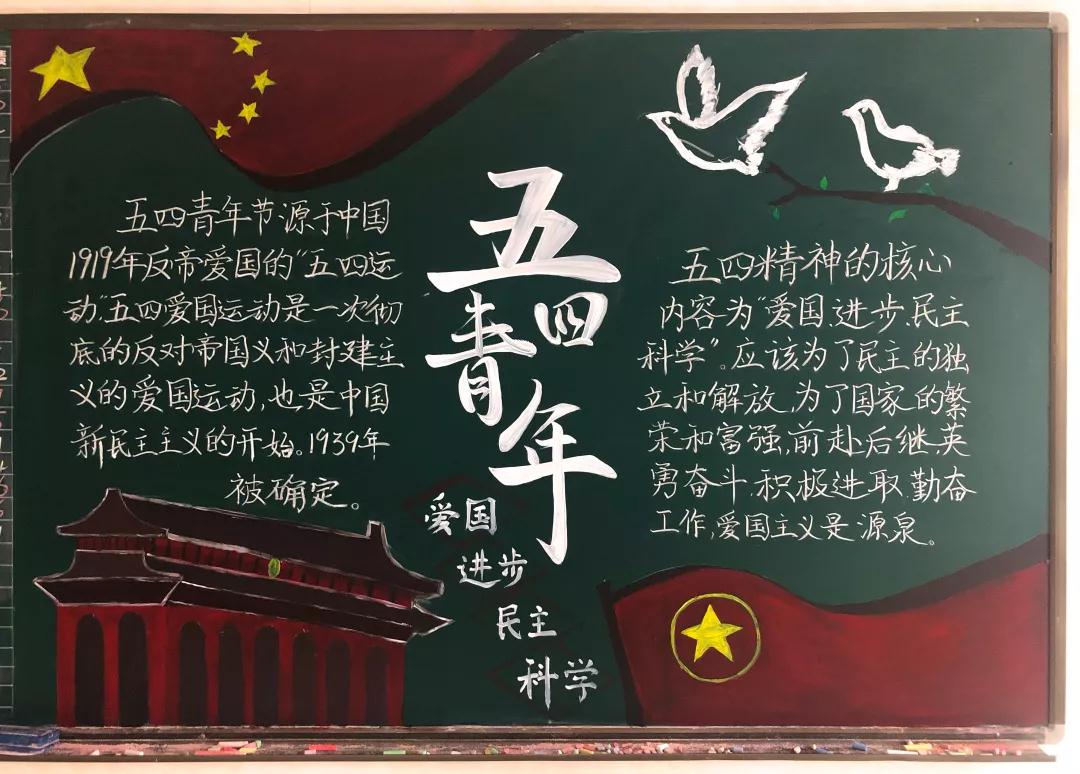 五四青年节源于中国
1919年反帝爱国的“五四运
动”五四爱国运动是一次彻
底的反对帝国义和封建主
义的爱国运动,也是中国
新民主主义的开始。1939年
被确定。
五四
青年
爱国
进步
民主
科学
五四精神的核心
内容为“爱国、进步、民主
科学”。应该为了民主的独
立和解放,为了国家的繁
荣和富强,前赴后继、英
勇奋斗、积极进取、勤奋
工作,爱国主义是源泉。